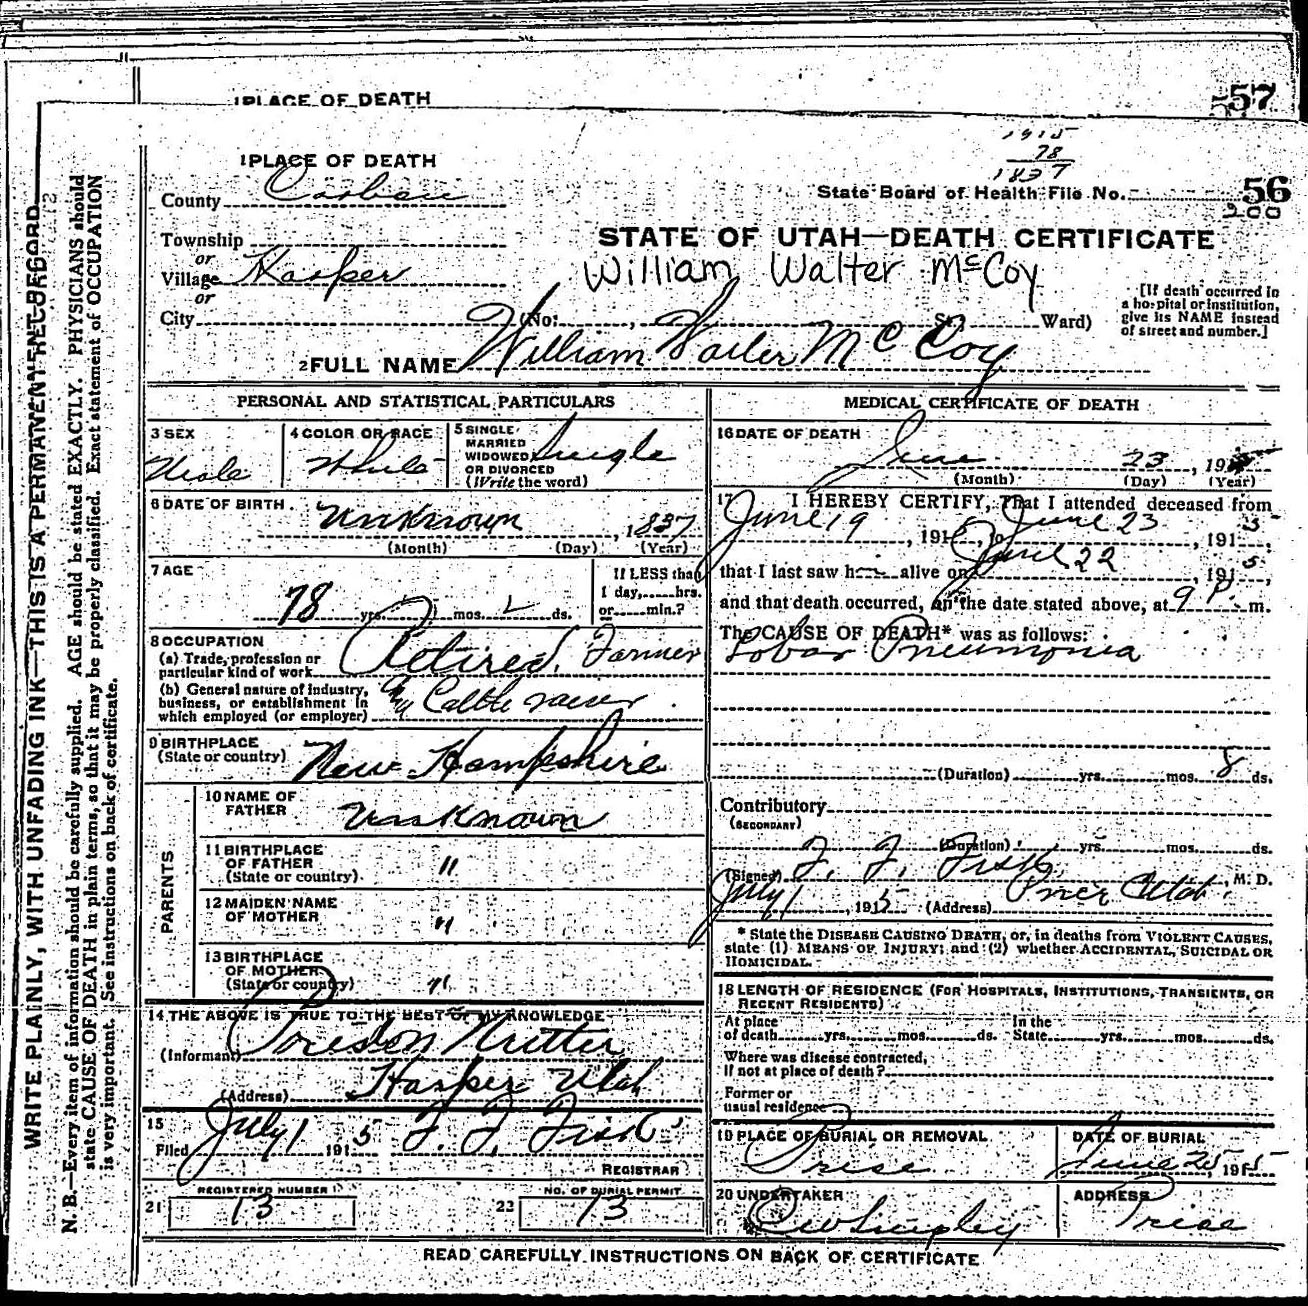 1 PLACE OF DEATH
57
1 PLACE OF DEATH
1915
78
1837
County Carbon
State Board of Health File No. 56
200
Township
or
Village Harper
or
City (No. , St. Ward)
STATE OF UTAH—DEATH CERTIFICATE
William Walter McCoy
[If death occurred in a hospital or institution, give its NAME instead of street and number.]
2 FULL NAME William Walter McCoy
PERSONAL AND STATISTICAL PARTICULARS
3 SEX Male
4 COLOR OR RACE White
5 SINGLE, MARRIED WIDOWED, OR DIVORCED (Write the word) Single
6 DATE OF BIRTH. Unknown , 1837
(Month) (Day) (Year)
7 AGE
78 yrs. mos. ds.
If LESS than 1 day, hrs. or min.?
8 OCCUPATION
(a) Trade, profession or particular kind of work Retired Farmer
(b) General nature of industry, business, or establishment in which employed (or employer) Cattle raiser
9 BIRTHPLACE (State or country) New Hampshire
PARENTS
10 NAME OF FATHER Unknown
11 BIRTHPLACE OF FATHER (State or country) "
12 MAIDEN NAME OF MOTHER "
13 BIRTHPLACE OF MOTHER (State or country) "
14 THE ABOVE IS TRUE TO THE BEST OF MY KNOWLEDGE
(Informant) Preston Nutter
(Address) Harper Utah
15
Filed July 1 1915 F. F. Fisk
REGISTRAR
21 REGISTERED NUMBER 13
22 NO. OF BURIAL PERMIT 13
MEDICAL CERTIFICATE OF DEATH
16 DATE OF DEATH
June 23 , 1915
(Month) (Day) (Year)
17 I HEREBY CERTIFY, That I attended deceased from
June 19 , 1915, to June 23 , 1915,
that I last saw h alive on June 22 , 1915,
and that death occurred, on the date stated above, at 9 P. m.
The CAUSE OF DEATH* was as follows:
Lobar Pneumonia
(Duration) yrs. mos. 8 ds.
Contributory
(SECONDARY)
(Duration) yrs. mos. ds.
(Signed) F. F. Fisk, M. D.
July 1 , 1915 (Address) Price Utah.
* State the DISEASE CAUSING DEATH, or, in deaths from VIOLENT CAUSES, state (1) MEANS OF INJURY; and (2) whether ACCIDENTAL, SUICIDAL OR HOMICIDAL.
18 LENGTH OF RESIDENCE (FOR HOSPITALS, INSTITUTIONS, TRANSIENTS, OR RECENT RESIDENTS)
At place of death yrs. mos. ds. In the State yrs. mos. ds.
Where was disease contracted, If not at place of death?
Former or usual residence
19 PLACE OF BURIAL OR REMOVAL Price
DATE OF BURIAL June 25, 1915
20 UNDERTAKER
ADDRESS Price
READ CAREFULLY INSTRUCTIONS ON BACK OF CERTIFICATE
WRITE PLAINLY, WITH UNFADING INK—THIS IS A PERMANENT RECORD
N. B.—Every item of information should be carefully supplied. AGE should be stated EXACTLY. PHYSICIANS should
state CAUSE OF DEATH in plain terms, so that it may be properly classified. Exact statement of OCCUPATION
is very important. See instructions on back of certificate.